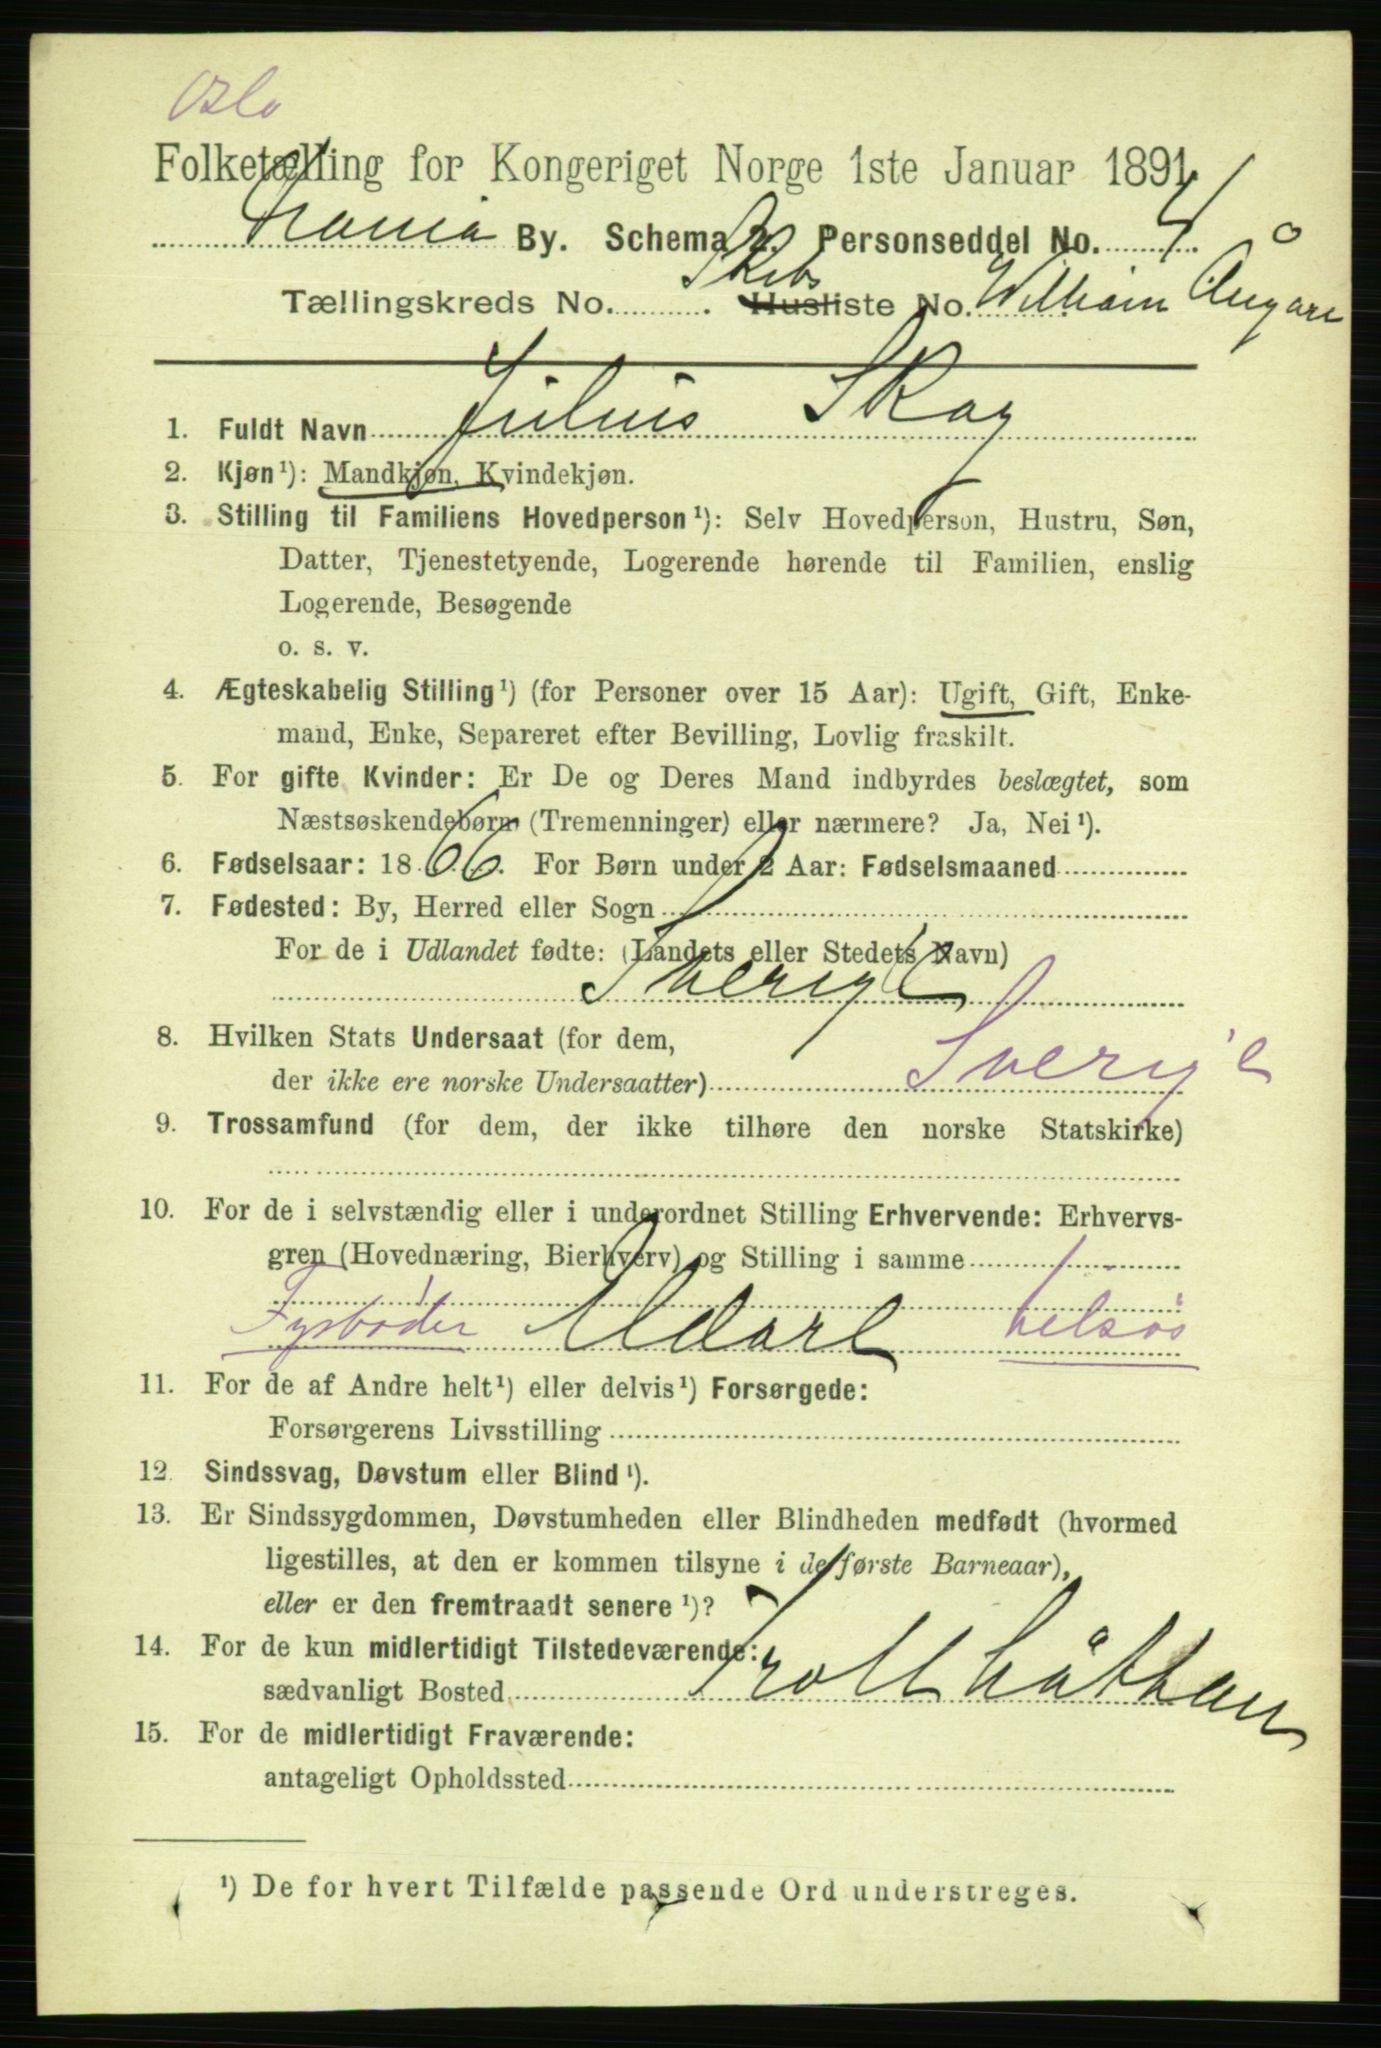 Oslo
Folketælling for Kongeriget Norge 1ste Januar 1891
By. Schema 2. Personseddel No. 4
Tællingskreds No. . Skibs Husliste No. William
1. Fuldt Navn Julius Skog
2. Kjøn¹): Mandkjøn, Kvindekjøn.
3. Stilling til Familiens Hovedperson¹): Selv Hovedperson, Hustru, Søn,
Datter, Tjenestetyende, Logerende hørende til Familien, enslig
Logerende, Besøgende
o. s. v.
4. Ægteskabelig Stilling¹) (for Personer over 15 Aar): Ugift, Gift, Enke-
mand, Enke, Separeret efter Bevilling, Lovlig fraskilt.
5. For gifte Kvinder: Er De og Deres Mand indbyrdes beslægtet, som
Næstsøskendebørn (Tremenninger) eller nærmere? Ja, Nei¹).
6. Fødselsaar: 1866. For Børn under 2 Aar: Fødselsmaaned
7. Fødested: By, Herred eller Sogn
For de i Udlandet fødte: (Landets eller Stedets Navn)
Sverige
8. Hvilken Stats Undersaat (for dem,
der ikke ere norske Undersaatter) Sverige
9. Trossamfund (for dem, der ikke tilhøre den norske Statskirke)
10. For de i selvstændig eller i underordnet Stilling Erhvervende: Erhvervs-
gren (Hovednæring, Bierhverv) og Stilling i samme
Fyrbøder
11. For de af Andre helt¹) eller delvis¹) Forsørgede:
Forsørgerens Livsstilling
12. Sindssvag, Døvstum eller Blind¹).
13. Er Sindssygdommen, Døvstumheden eller Blindheden medfødt (hvormed
ligestilles, at den er kommen tilsyne i de første Barneaar),
eller er den fremtraadt senere¹)?
14. For de kun midlertidigt Tilstedeværende:
sædvanligt Bosted Trollhättan
15. For de midlertidigt Fraværende:
antageligt Opholdssted
¹) De for hvert Tilfælde passende Ord understreges.